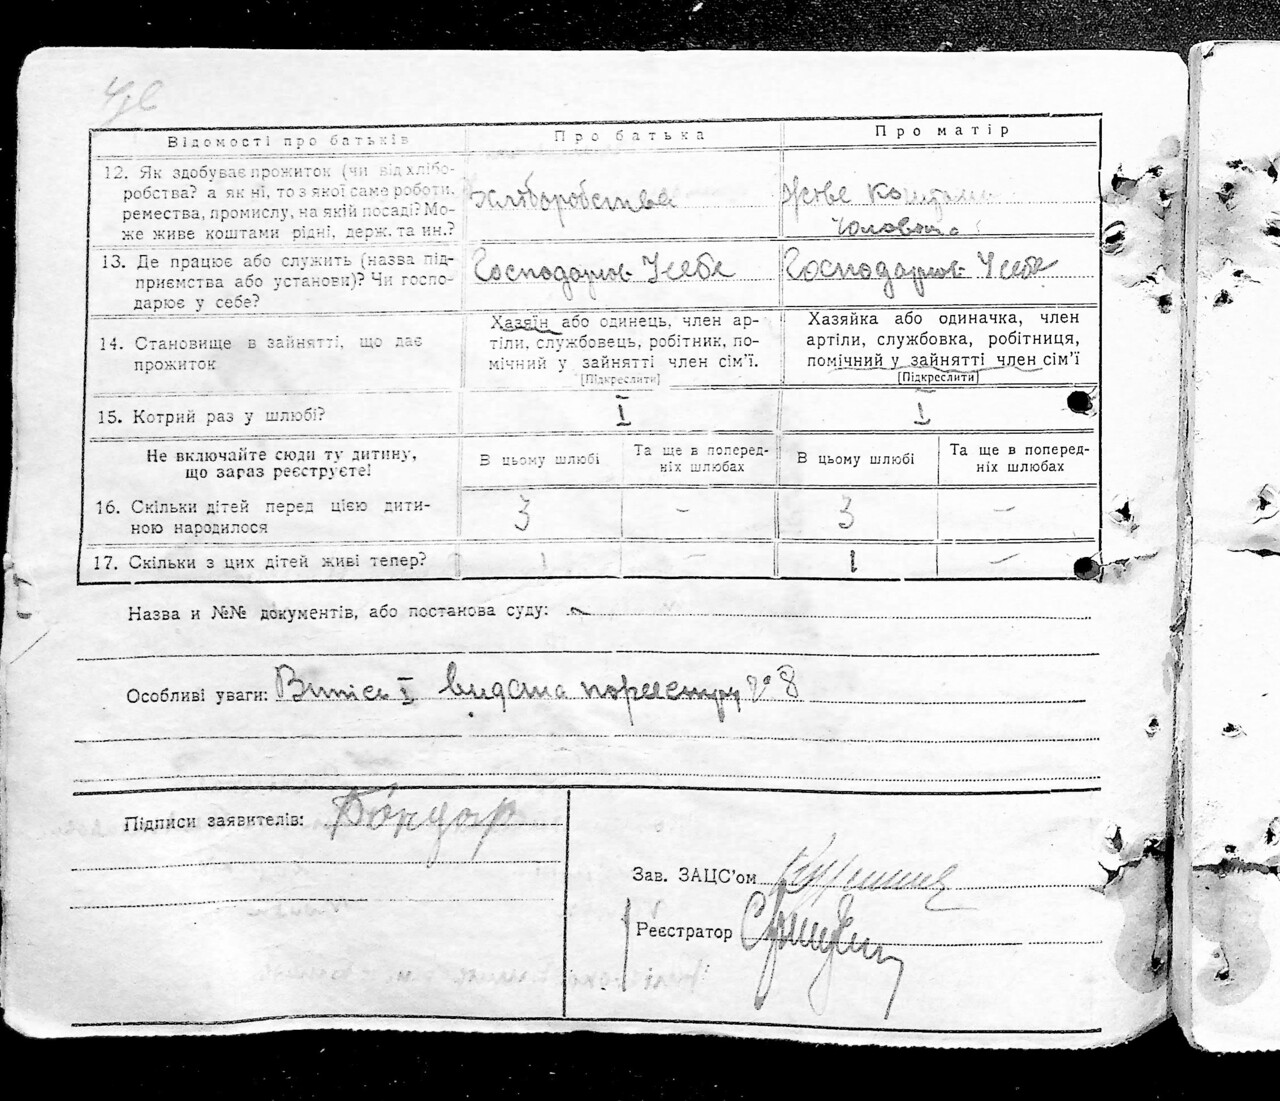 Відомості про батьків
Про батька
Про матір
12. Як здобуває прожиток (чи від хлібо-
робства? а як ні, то з якої саме роботи,
ремества, промислу, на якій посаді? Мо-
же живе коштами рідні, держ. та ин.?
Хліборобства
Живе коштами
чоловіка
13. Де працює або служить (назва під-
приємства або установи)? Чи госпо-
дарює у себе?
Господарює У себе
Господарює У себе
14. Становище в зайнятті, що дає
прожиток
Хазяїн або одинець, член ар-
тіли, службовець, робітник, по-
мічний у зайнятті член сім'ї.
[Підкреслити]
Хазяйка або одиначка, член
артіли, службовка, робітниця,
помічний у зайнятті член сім'ї
[Підкреслити]
15. Котрий раз у шлюбі?
I
I
Не включайте сюди ту дитину,
що зараз реєструєте!
В цьому шлюбі
Та ще в поперед-
ніх шлюбах
В цьому шлюбі
Та ще в поперед-
ніх шлюбах
16. Скільки дітей перед цією дити-
ною народилося
3
-
3
-
17. Скільки з цих дітей живі тепер?
1
-
1
-
Назва и №№ документів, або постанова суду:
Особливі уваги: Випис I видана по реєстру № 8
Підписи заявителів: Бондар
Зав. ЗАЦС'ом
Реєстратор